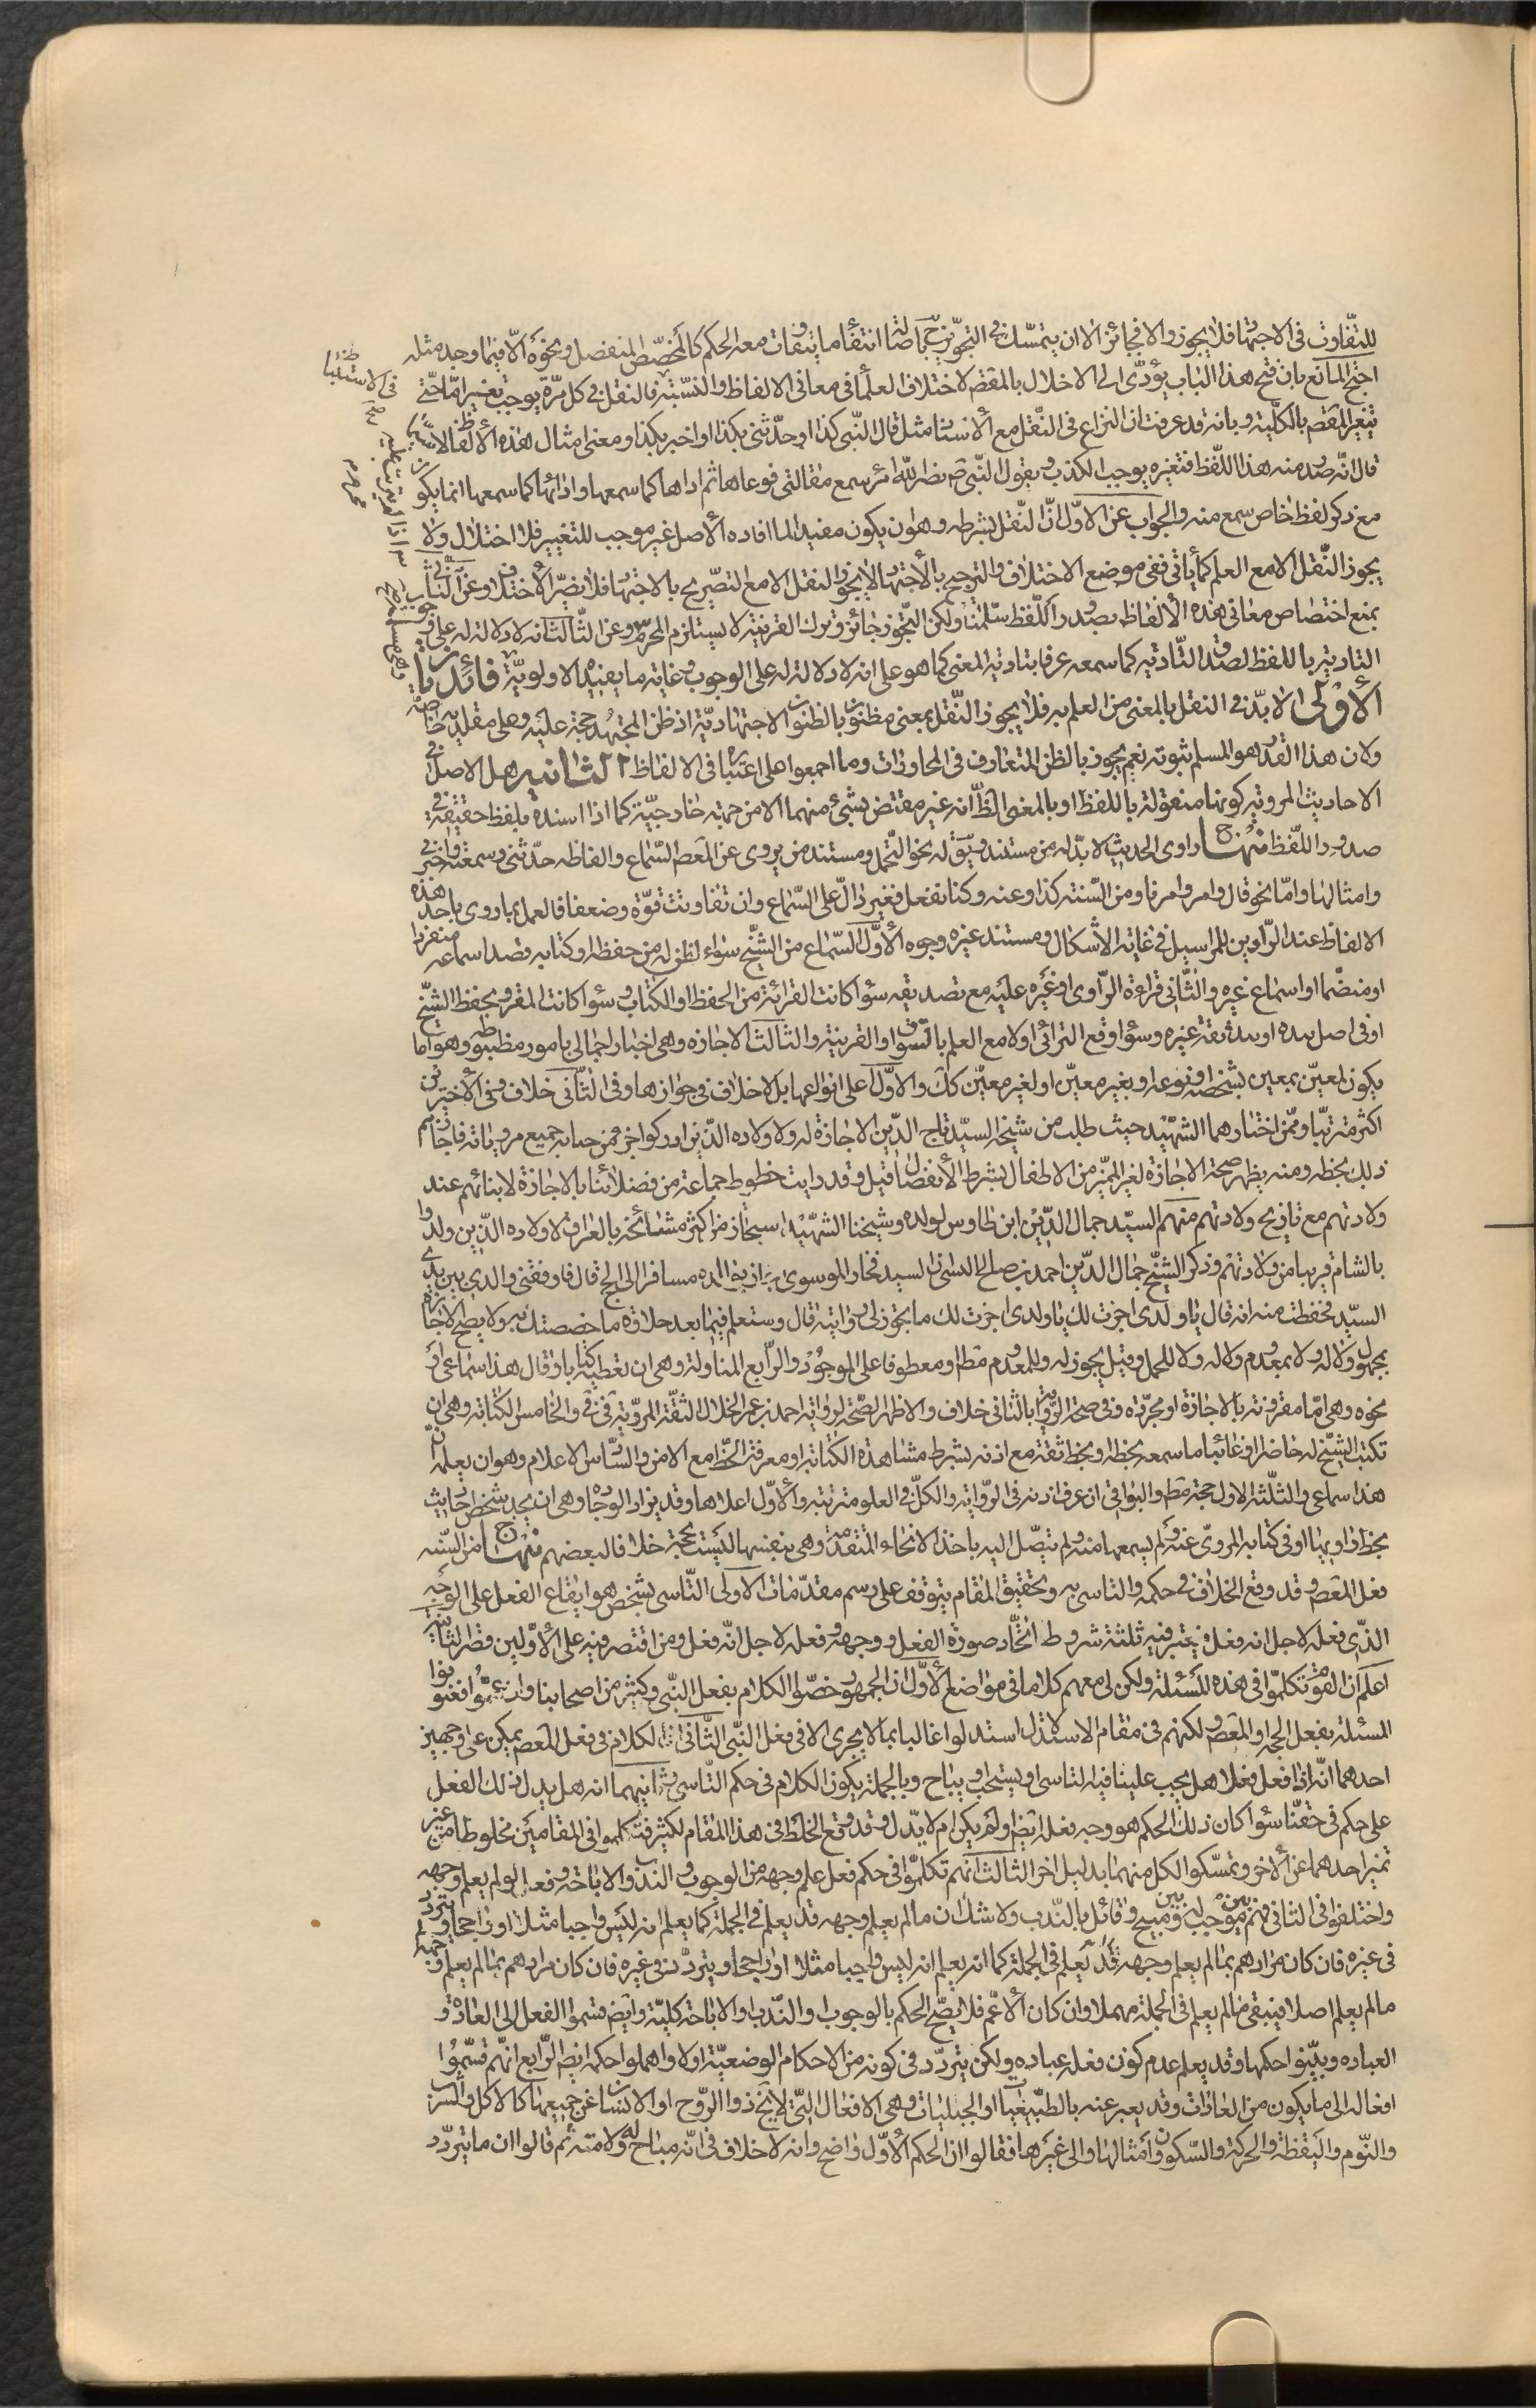 للتفاوت فى الاجتهاد فلا يجوز والا فجائز الا ان يتمسك فى التجويز ح باصالة انتفاء ما يتفاوت معه الحكم كالمخصص المنفصل ونحوه الا فيما وجد مثله
احتج المانع بان فتح هذا الباب يؤدى الى الاخلال بالمقصم لاختلاف العلماء فى معانى الالفاظ والنسبة فالنقل فى كل مرة يوجب تغييرا ما حتى
يتغير المقصم بالكلية وبانه قد عرفت ان النزاع فى النقل مع الاسناد مثل قال النبى كذا او حدثنى بكذا او اخبر بكذا ومعنى امثال هذه الالفاظ
قال انه صدر منه هذا اللفظ فتغيره يوجب الكذب وبقول النبى ص نضر الله امرء سمع مقالتى فوعاها ثم اداها كما سمعها واداؤها كما سمعها انما يكون
مع ذكر لفظ خاص سمع منه والجواب عن الاول ان النقل بشرطه وهو ان يكون مفيدا لما افاده الاصل غير موجب للتغيير فلا اختلال ولا
يجوز النقل الا مع العلم كما يأتى ففى موضع الاختلاف والترجيح بالاجتهاد لا يجوز النقل الا مع التصريح بالاجتهاد فلا يضر الاختلاف وعن الثانى
بمنع اختصاص معانى هذه الالفاظ بصدور اللفظ سلمنا ولكن التجوز جائز وترك القرينة لا يستلزم المحرم وعن الثالث انه لا دلالة له على وجوب
التادية باللفظ لصدق التادية كما سمعه عرفا بتادية المعنى كما هو على انه لا دلالة له على الوجوب وغاية ما يفيده الاولوية فائدتان
الاولى لا بد فى النقل بالمعنى من العلم به فلا يجوز النقل بمعنى مظنون بالظنون الاجتهادية اذ ظن المجتهد حجة عليه وعلى مقلديه خاصة
ولان هذا القدر هو المسلم ثبوته نعم يجوز بالظن المتعارف فى المحاورات وما اجمعوا على اعتباره فى الالفاظ الثانية هل الاصل فى
الاحاديث المروية كونها منقولة باللفظ او بالمعنى الظ انه غير مقتض بشئ منهما الا من جهة خارجية كما اذا اسنده بلفظ حقيقة فى
صدور اللفظ منهاج راوى الحديث لا بد له من مستند وسيق له نحو التحمل ومستند من يروى عن المعصم السماع والفاظه حدثنى وسمعته واخبرنى
وامثالها واما نحو قال وامر وامرنا ومن السنة كذا وعنه وكنا نفعل فغير دال على السماع وان تفاوتت قوة وضعفا فالعمل بما روى باحد هذه
الالفاظ عند الراوين للمراسيل فى غاية الاشكال ومستند غيره وجوه الاول السماع من الشيخ سواء لفظ له من حفظه او كتابه قصد اسماعه منفردا
او منضما او اسماع غيره والثانى قراءة الراوى او غيره عليه مع تصديقه سواء كانت القراءة من الحفظ او الكتاب وسواء كانت المقرو بحفظ الشيخ
او فى اصل بيده او بيد ثقة غيره وسواء وقع الترائى او لا مع العلم بالسوق او القرينة والثالث الاجازه وهى اخبار اجمالى بامور مظبوطه وهو اما
يكون لمعين بمعين بشخصه او نوعه او بغير معين او لغير معين كك والاول على انواعها بلا خلاف فى جوازها وفى الثانى خلاف وفى الاخيرين
اكثر مترتبا وممن اختارهما الشهيد حيث طلب من شيخه السيد تاج الدين الاجازة له ولاولاده الذين ادركوا جزء من حياته جميع مروياته فاجازهم
ذلك بخطه ومنه يظهر صحة الاجازة لغير المميز من الاطفال بشرط الانفصال قيل وقد رايت خطوط جماعة من فضلائنا بالاجازة لابنائهم عند
ولادتهم مع تاريخ ولادتهم منهم السيد جمال الدين ابن طاوس لولده وشيخنا الشهيد استجاز من اكثر مشائخه بالعراق لاولاده الذين ولدوا
بالشام قريبا من ولادتهم وذكر الشيخ جمال الدين احمد بن صالح ان السيد فخار الموسوى اجتاز بوالده مسافرا الى الحج قال فاوقفنى والدى بين يدى
السيد فحفظت منه انه قال يا ولدى اجزت لك يا ولدى اجزت لك ما يجوز لى روايته قال وستعلم فيما بعد حلاوة ما خصصتك به ولا يصح الاجازة
بمجهول ولا له ولا بمعدوم ولا له ولا للحمل وقيل يجوز له وللمعدوم مطا او معطوفا على الموجود والرابع المناولة وهى ان تعطيه كتابا وقال هذا سماعى او
نحوه وهى اما مقرونة بالاجازة او مجردة وفى صحة الرواية بالثانى خلاف والاظهر الصحة لرواية احمد بن عمر الخلال الثقة المروية فى فى والخامس الكتابة وهى ان
تكتب الشيخ له حاضرا او غائبا ما سمعه بخطه وبخط ثقة مع اذنه بشرط مشاهدة الكتابة او معرفة الخط مع الامن والسادس الاعلام وهو ان يعلمه ان
هذا سماعى والثلثة الاول حجة مطم والبواقى ان عرف اذنه فى الرواية والكل فى العلو مترتبة والاول اعلاها وقد يزاد الوجاده وهى ان يجد شخص احاديث
بخط راويها او فى كتابه المروى عنه ولم يسمعها منه ولم يتصل اليه باحد الانحاء المتقدمة وهى بنفسها ليست بحجة خلافا لبعضهم منهاج من السنة
فعل المعصم وقد وقع الخلاف فى حكمه والتاسى به وتحقيق المقام يتوقف على رسم مقدمات الاولى التاسى بشخص هو ايقاع الفعل على الوجه
الذى فعله لاجل انه فعله فيعتبر فيه ثلثة شروط اتحاد صورة الفعل ووجهه وفعله لاجل انه فعل ومن اقتصر فيه على الاولين قصر الثانية
اعلم ان القوم تكلموا فى هذه المسئلة ولكن لى معهم كلاما فى مواضع الاول ان الجمهور خصوا الكلام بفعل النبى وكثير من اصحابنا وان عنونوا
المسئلة بفعل الحجة او المعصوم لكنهم فى مقام الاستدلال استدلوا غالبا بما لا يجرى الا فى فعل النبى الثانى ان الكلام فى فعل المعصم يمكن على وجهين
احدهما انه اذا فعل فعلا هل يجب علينا فيه التاسى او يستحب او يباح وبالجملة يكون الكلام فى حكم التاسى وثانيهما انه هل يدل ذلك الفعل
على حكم فى حقنا سواء كان ذلك الحكم هو وجه فعله ايضم او لم يكن ام لا يدل وقد وقع الخلط فى هذا المقام لكثير فتكلموا فى المقامين مخلوطا من غير
تميز احدهما عن الاخر وتمسكوا لكل منهما بدليل اخر الثالث انهم تكلموا فى حكم فعل علم وجهه من الوجوب والندب والاباحة وفعل لو لم يعلم وجهه
واختلفوا فى الثانى فهم بين موجب له وبين مبيح وقائل بالندب ولا شك ان ما لم يعلم وجهه قد يعلم فى الجملة كما يعلم انه ليس واجبا مثلا او راجحا ويتردد
فى غيره فان كان مرادهم بما لم يعلم وجهه قد يعلم فى الجملة كما انه يعلم انه ليس واجبا مثلا او راجحا ويتردد فى غيره فان كان مرادهم بما لم يعلم وجهه
ما لم يعلم اصلا فيبقى ما لم يعلم فى الجملة مهملا وان كان الاعم فلا يصح الحكم بالوجوب او الندب او الاباحة كلية وايضم قسموا الفعل الى العادة و
العباده وبينوا حكمها وقد يعلم عدم كون فعله عباده ولكن يتردد فى كونه من الاحكام الوضعية او لا واهملوا حكمه ايضم الرابع انهم قسموا
افعاله الى ما يكون من العادات وقد يعبر عنه بالطبيعيات او الجبليات وهى الافعال التى لا يخ ذوا الروح او الانسان عن جميعها كالاكل والشرب
والنوم واليقظة والحركة والسكون وامثالها والى غيرها فقالوا ان الحكم الاول واضح وانه لا خلاف فى انه مباح له ولامته ثم قالوا ان ما يتردد